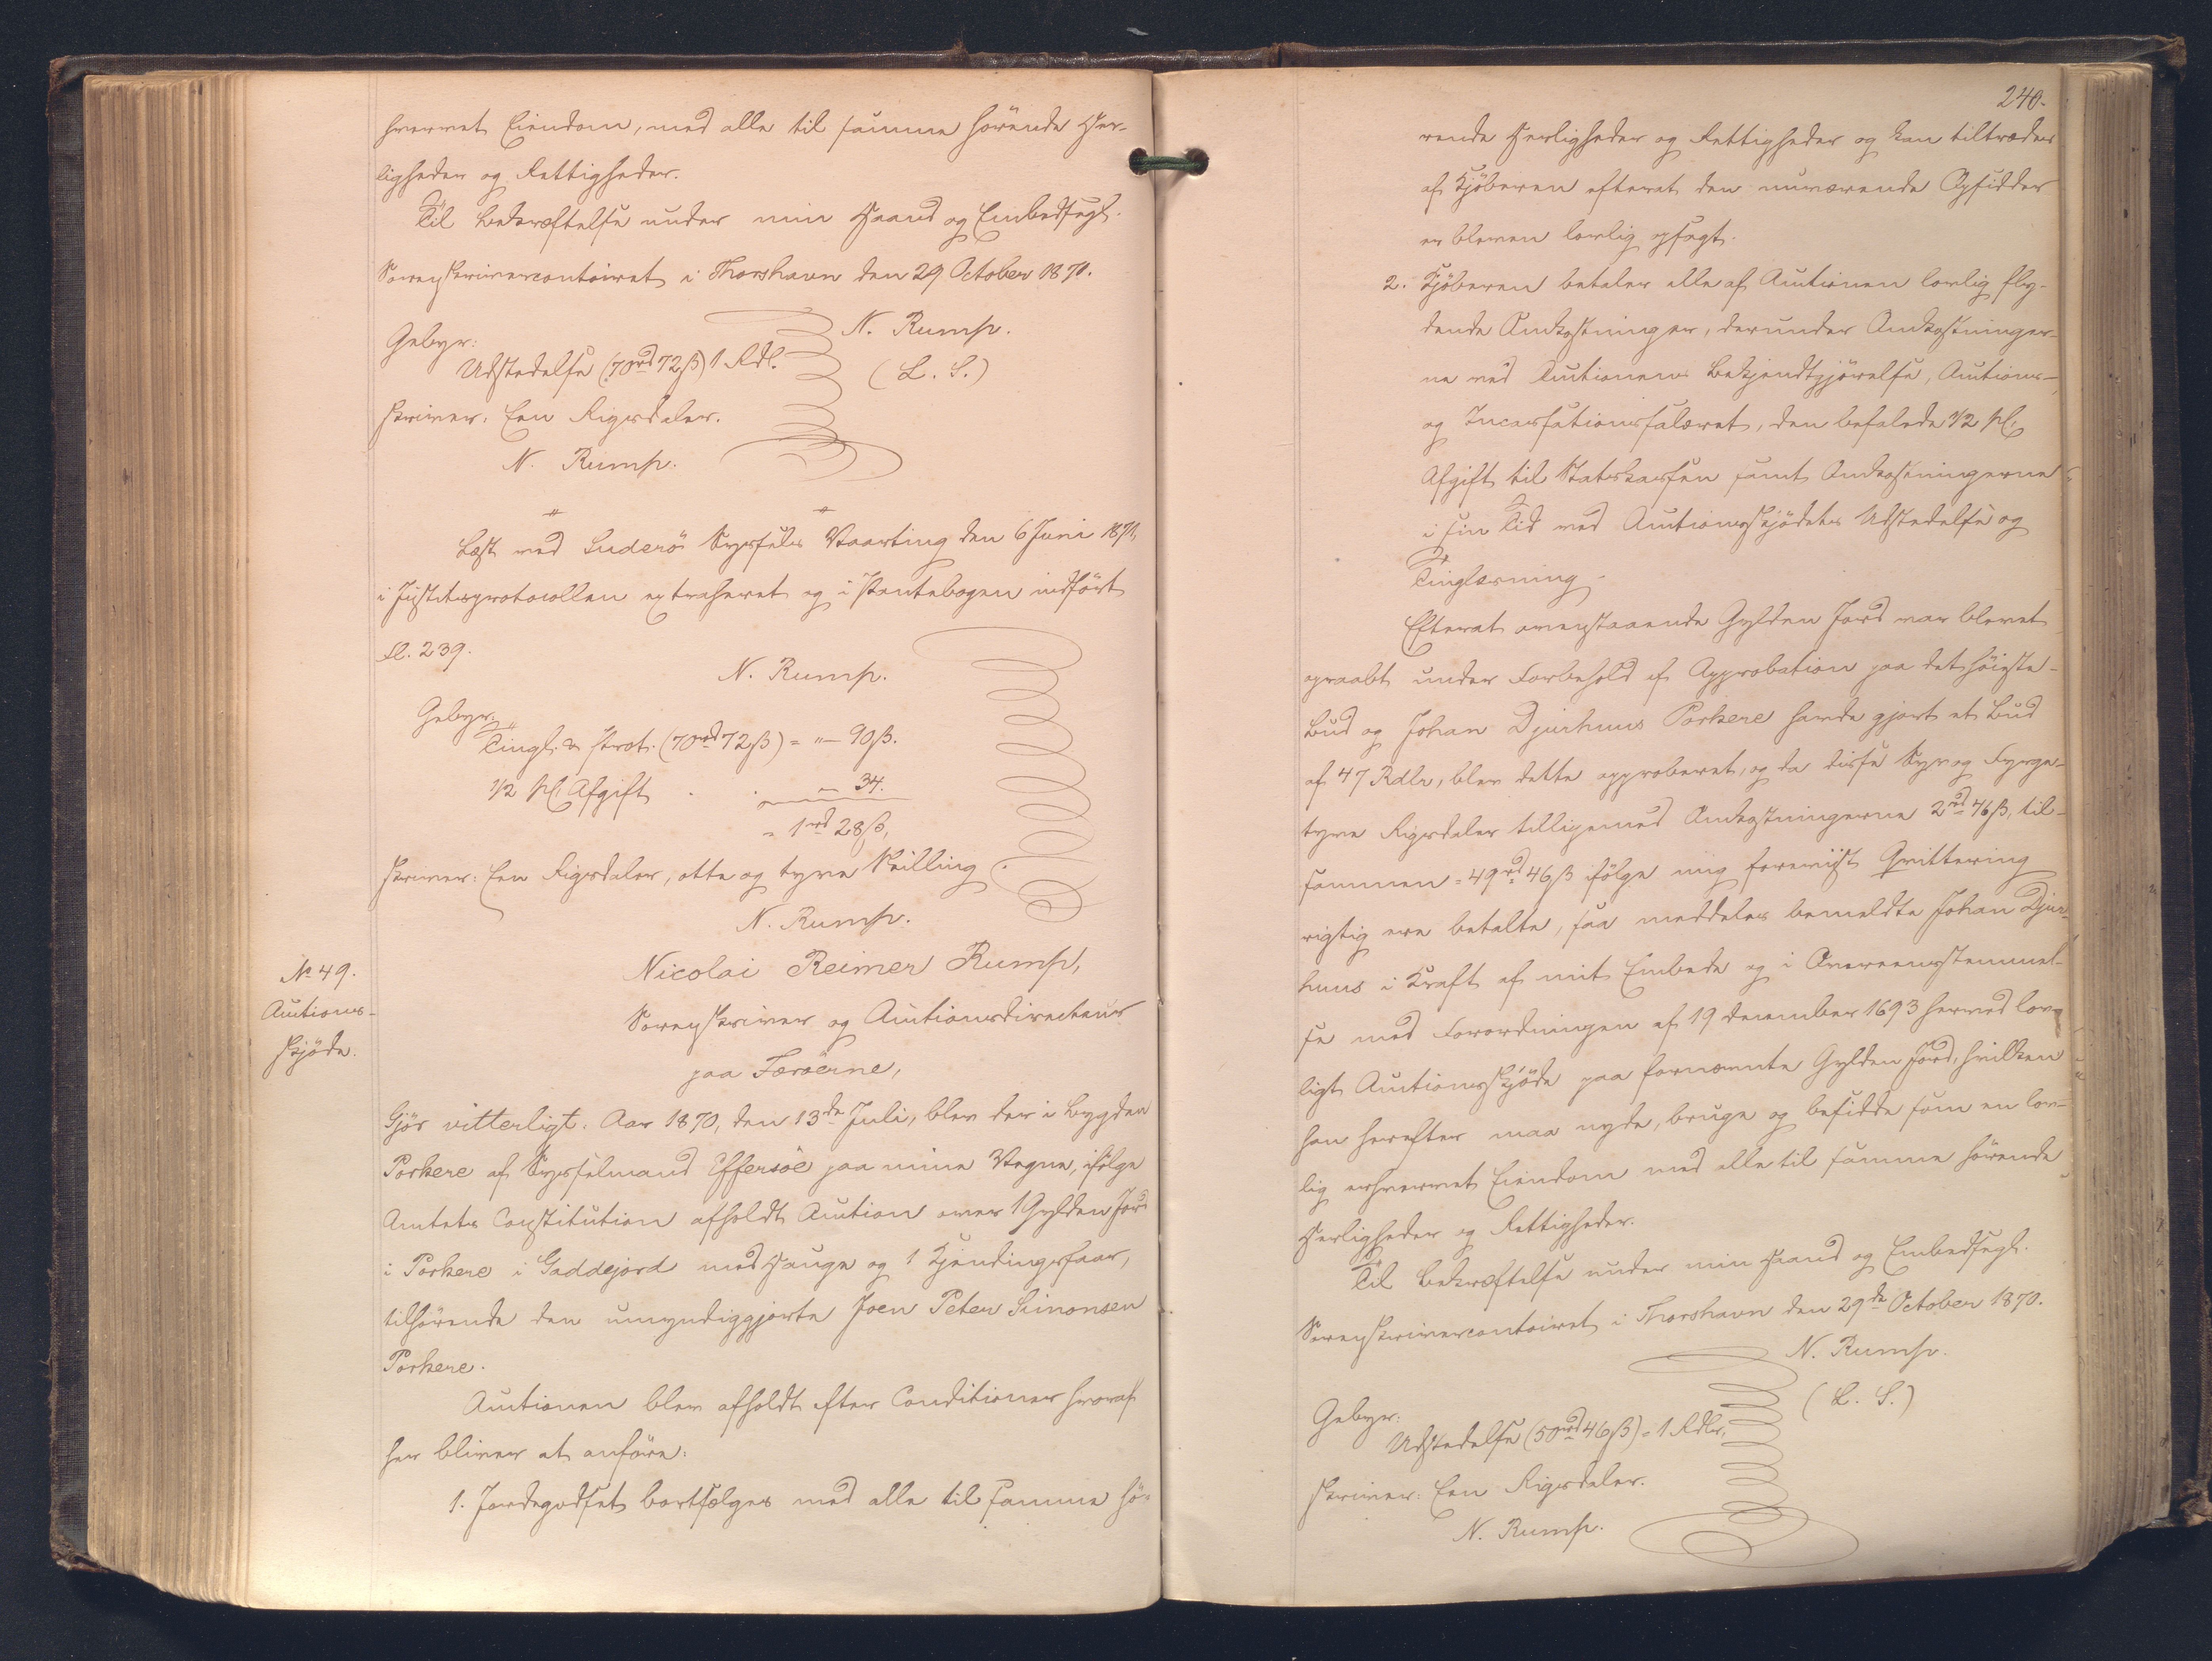 hvervet Eiendom, med alle til samme hörende Her-
ligheder og Rettigheder.
Til Bekræftelse under min Haand og Embedssegl.
Sorenskrivercontoiret i Thorshavn den 29 October 1870.
N. Rump.
Gebyr:
Udstedelse (70rd 72ß) 1 Rdl.
(L. S.)
skriver: Een Rigsdaler.
N. Rump.
Læst ved Suderö Syssels Vaarting den 6 Juni 1871,
i Justitsprotocollen extraheret og i Pantebogen indfört
fl. 239.
N. Rump.
Gebyr:
Tingl. & Prot. (70rd 72ß) = "– 90ß.
1/2 pCt Afgift . . – 34.
= 1rd 28ß,
skriver: Een Rigsdaler, otte og tyve Skilling.
N. Rump.
No 49.
Auctions-
skjöde.
Nicolai Reimer Rump,
Sorenskriver og Auctionsdirecteur
paa Færöerne,
Gjör vitterligt: Aar 1870, den 13de Juli, blev der i Bygden
Porkere af Sysselmand Effersöe paa mine Vegne, ifölge
Amtets Constitution afholdt Auction over 1 Gylden Jord
i Porkere i Gaddejord med Hauge og 1 Kjendingsfaar,
tilhörende den umyndiggjorte Joen Peter Simonsen
Porkere.
Auctionen blev afholdt efter Conditioner hvoraf
her bliver at anföre:
1. Jordegodset bortsælges med alle til samme hö-
240.
rende Herligheder og Rettigheder og kan tiltrædes
af Kjöberen efterat den nuværende Opsidder
er bleven lovlig opsagt.
2. Kjöberen betaler alle af Auctionen lovlig fly-
dende Omkostninger, derunder Omkostninger-
ne ved Auctionens Bekjendtgjörelse, Auctions-
og Incassationssalæret, den befalede 1/2 pCt.
Afgift til Statskassen samt Omkostningerne
i sin Tid ved Auctionsskjödets Udstedelse og
Tinglæsning.
Efterat ovenstaaende Gylden Jord var blevet
opraabt under Forbehold af Approbation paa det höieste
Bud og Johan Djurhuus Porkere havde gjort et Bud
af 47 Rdlr, blev dette approberet, og da disse Syv og Fyrge-
tyve Rigsdaler tilligemed Omkostningerne 2rd 46ß, til-
sammen = 49rd 46ß ifölge mig foreviist Qvittering
rigtig ere betalte, saa meddeles bemeldte Johan Djur-
huus i Kraft af mit Embede og i Overeensstemmel-
se med Forordningen af 19 december 1693 hermed lov-
ligt Auctionsskjöde paa fornævnte Gylden Jord, hvilken
han herefter maa nyde, bruge og besidde som en lov-
lig erhvervet Eiendom med alle til samme hörende
Herligheder og Rettigheder.
Til Bekræftelse under min Haand og Embedssegl.
Sorenskrivercontoiret i Thorshavn den 29de October 1870.
N. Rump.
(L. S.)
Gebyr:
Udstedelse (50rd 46ß) = 1 Rdlr.
skriver: Een Rigsdaler.
N. Rump.